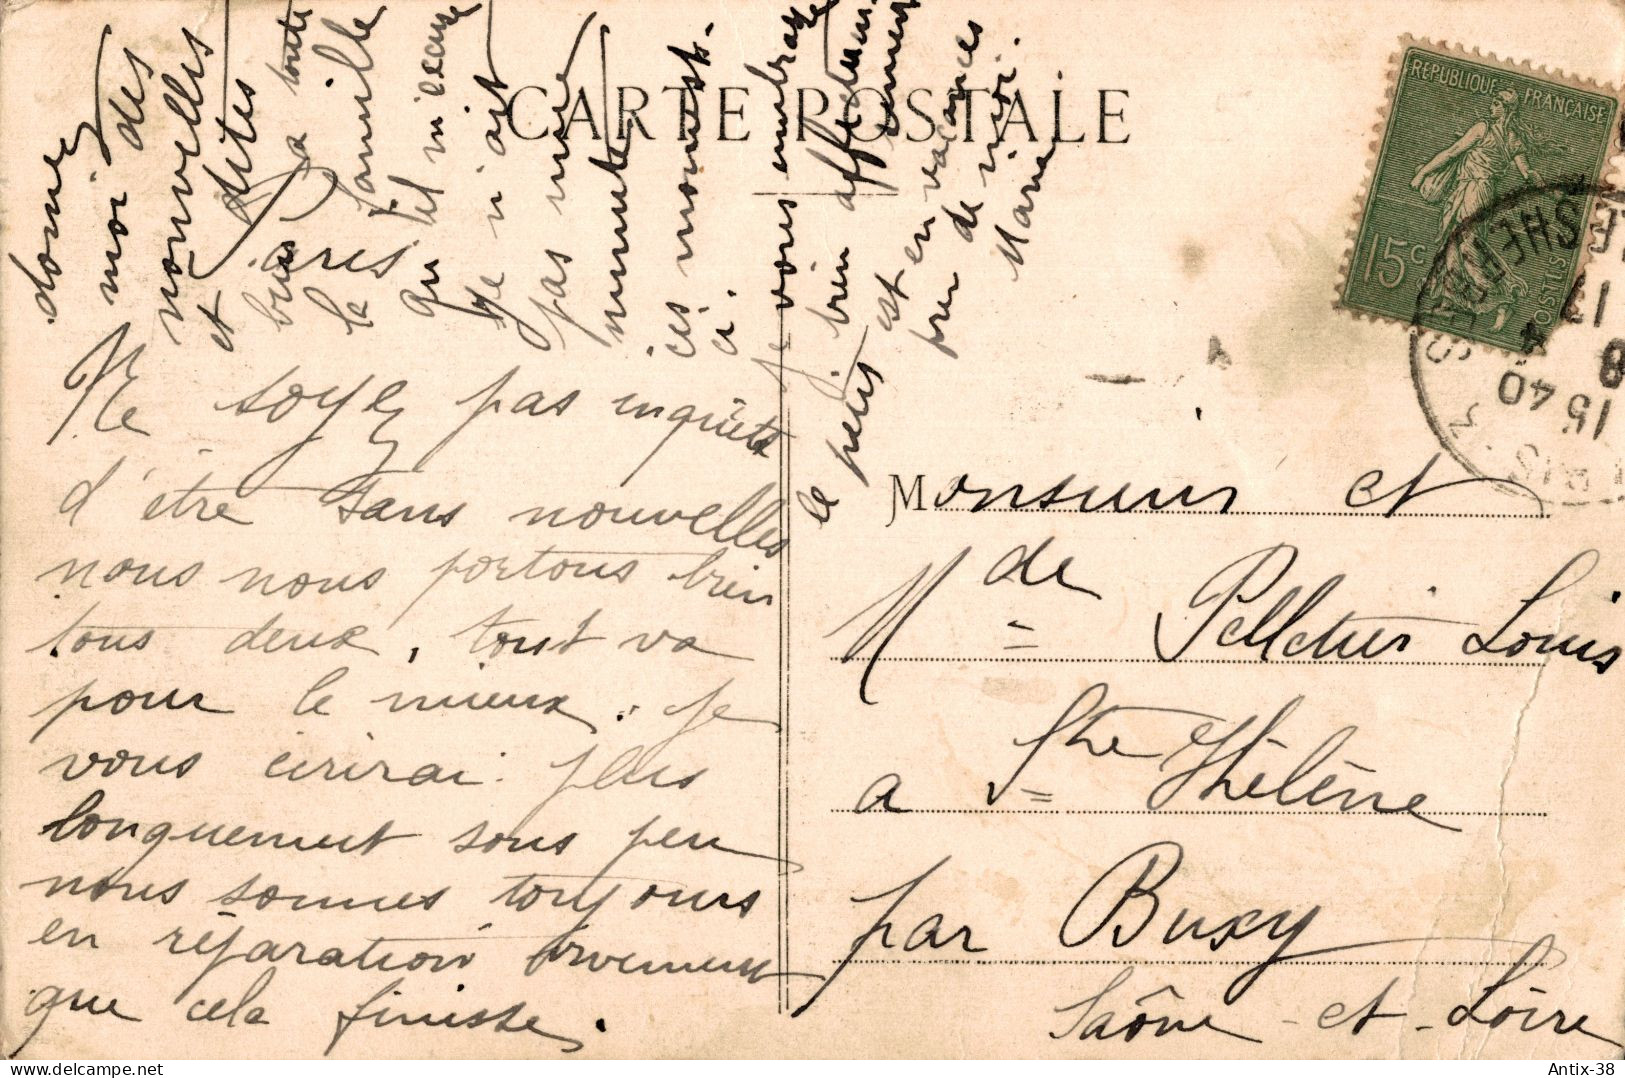 CARTE POSTALE
Ne soyez pas inquiets
d'être sans nouvelles
nous nous portons bien
tous deux, tout va
pour le mieux. Je
vous écrirai plus
longuement sous peu
nous sommes toujours
en réparation vivement
que cela finisse.
donne
moi des
nouvelles
et dites
bien
à toute
la famille
Paris
qu'el m'excuse
je n'ai
pas une
minute
ces moments-
ci.
Je vous embrasse
bien affectueu-
sement
le petit
est en vacances
près de moi.
Marie
RÉPUBLIQUE FRANÇAISE
15c
POSTES
15 40
Monsieur et
Mde Pelletier Louis
a Ste Hélène
par Buxy
Saône-et-Loire
delcampe.net
Antix-38